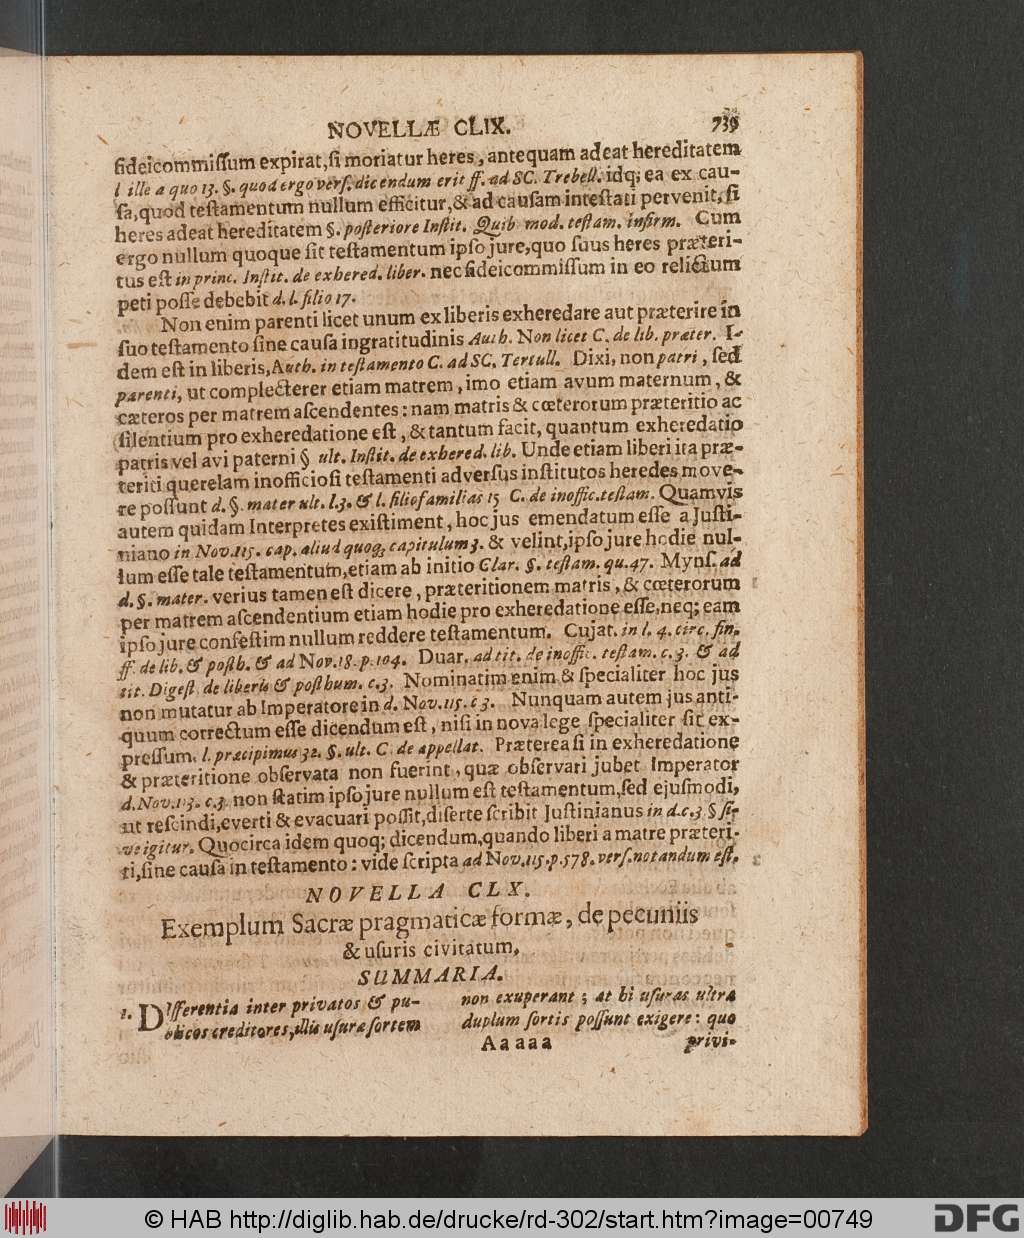 NOVELLÆ CLIX. 739
fideicommiſſum expirat, ſi moriatur heres, antequam adeat hereditatem
l ille a quo 13. §. quod ergo verſ. dicendum erit ff. ad SC. Trebell. idq; ea ex cau-
ſa, quod teſtamentum nullum efficitur, & ad cauſam inteſtati pervenit, ſi
heres adeat hereditatem §. poſteriore Inſtit. Quib. mod. teſtam. infirm. Cum
ergo nullum quoque ſit teſtamentum ipſo jure, quo ſuus heres præteri-
tus eſt in princ. Inſtit. de exhered. liber. nec fideicommiſſum in eo relictum
peti poſſe debebit d. l. filio 17.
Non enim parenti licet unum ex liberis exheredare aut præterire in
ſuo teſtamento ſine cauſa ingratitudinis Auth. Non licet C. de lib. præter. I-
dem eſt in liberis, Auth. in teſtamento C. ad SC. Tertull. Dixi, non patri, ſed
parenti, ut complecterer etiam matrem, imo etiam avum maternum, &
cæteros per matrem aſcendentes: nam matris & cœterorum præteritio ac
ſilentium pro exheredatione eſt, & tantum facit, quantum exheredatio
patris vel avi paterni § ult. Inſtit. de exhered. lib. Unde etiam liberi ita præ-
teriti querelam inofficioſi teſtamenti adverſus inſtitutos heredes move-
re poſſunt d. §. mater ult. l. 3. & l. filiofamilias 15 C. de inoffic. teſtam. Quamvis
autem quidam Interpretes exiſtiment, hoc jus emendatum eſſe a Juſti-
niano in Nov. 115. cap. aliud quoq; capitulum 3. & velint, ipſo jure hodie nul-
lum eſſe tale teſtamentum, etiam ab initio Clar. §. teſtam. qu. 47. Mynſ. ad
d. §. mater. verius tamen eſt dicere, præteritionem matris, & cœterorum
per matrem aſcendentium etiam hodie pro exheredatione eſſe, neq; eam
ipſo jure confeſtim nullum reddere teſtamentum. Cujat. in l. 4. circ. fin.
ff. de lib. & poſth. & ad Nov. 18. p. 104. Duar. ad tit. de inoffic. teſtam. c. 3. & ad
tit. Digeſt. de liberis & poſthum. c. 3. Nominatim enim & ſpecialiter hoc jus
non mutatur ab Imperatore in d. Nov. 115. c 3. Nunquam autem jus anti-
quum correctum eſſe dicendum eſt, niſi in nova lege ſpecialiter ſit ex-
preſſum. l. præcipimus 32. §. ult. C. de appellat. Præterea ſi in exheredatione
& præteritione obſervata non fuerint, quæ obſervari jubet Imperator
d. Nov. 113. c. 3. non ſtatim ipſo jure nullum eſt teſtamentum, ſed ejuſmodi,
ut reſcindi, everti & evacuari poſſit, diſerte ſcribit Juſtinianus in d. c. 3 § ſi-
ve igitur. Quocirca idem quoq; dicendum, quando liberi a matre præteri-
ti, ſine cauſa in teſtamento: vide ſcripta ad Nov. 115. p. 578. verſ. notandum eſt.
NOVELLA CLX.
Exemplum Sacræ pragmaticæ formæ, de pecuniis
& uſuris civitatum,
SUMMARIA.
1. Differentia inter privatos & pu-
blicos creditores, illis uſuræ ſortem
non exuperant; at hi uſuras ultra
duplum ſortis poſſunt exigere: quo
Aaaaa privi-
© HAB http://diglib.hab.de/drucke/rd-302/start.htm?image=00749
DFG